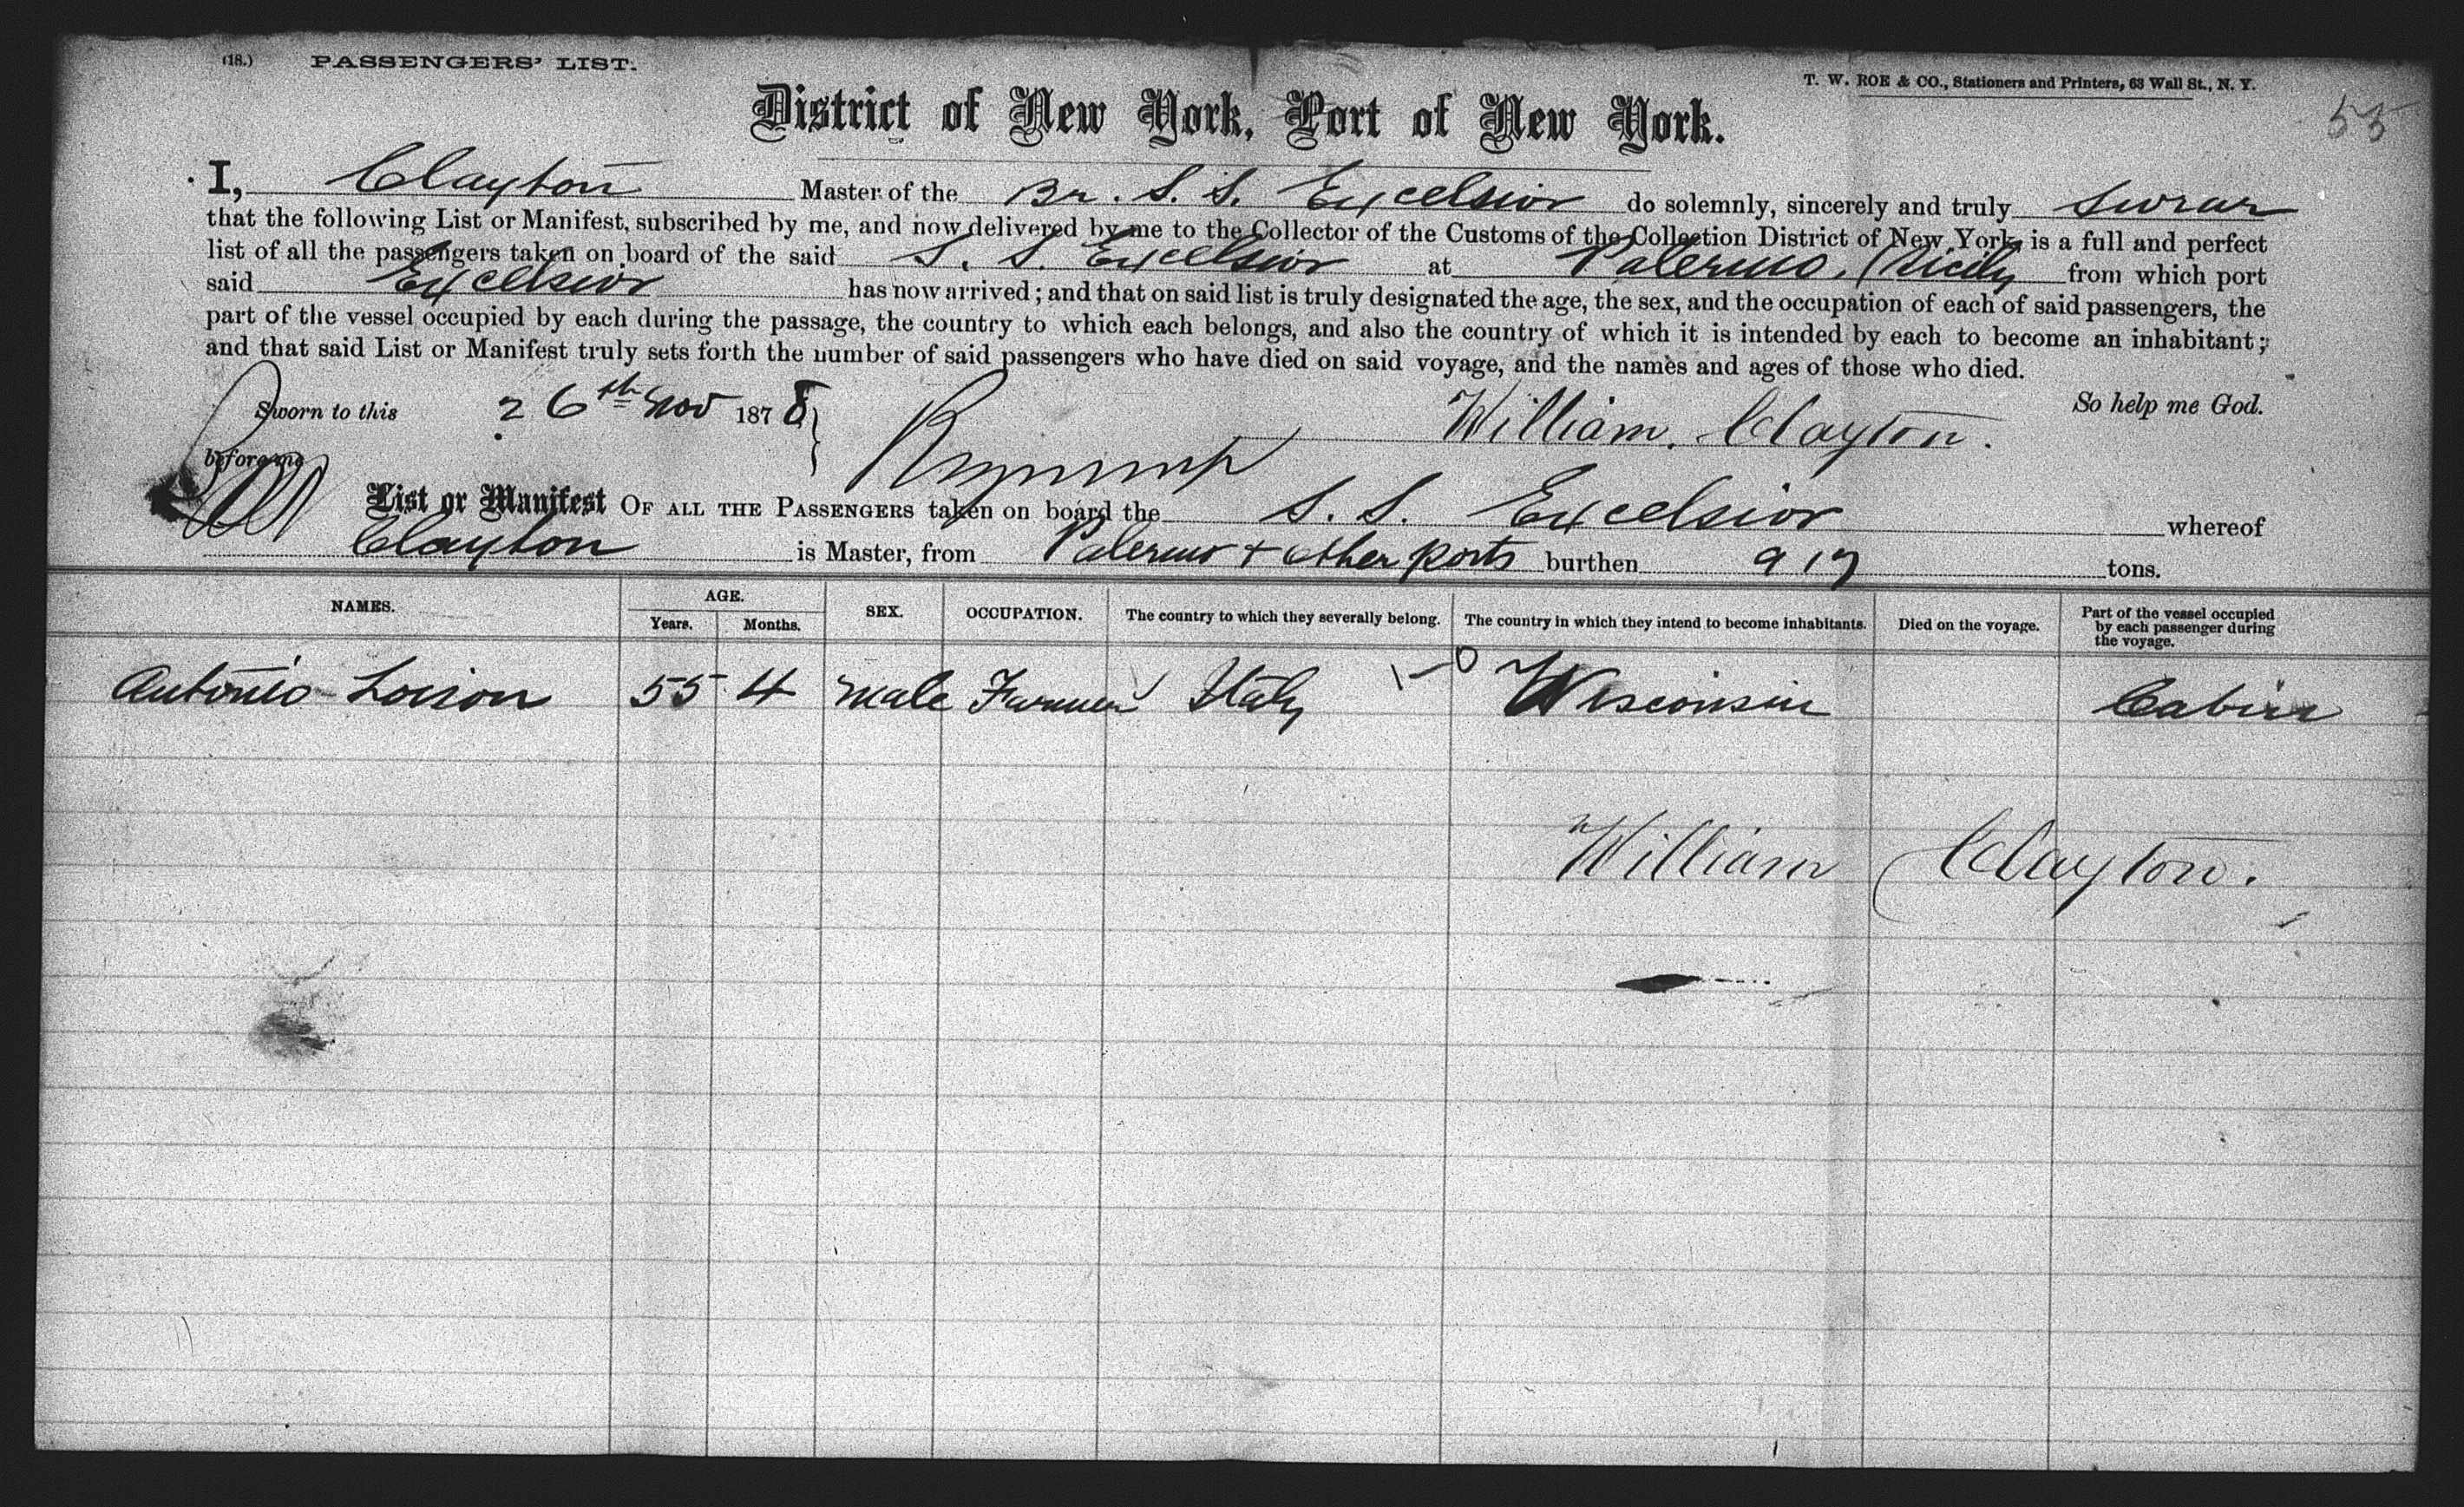 (18.) PASSENGERS' LIST.
T. W. ROE & CO., Stationers and Printers, 63 Wall St., N. Y.
55
District of New York, Port of New York.
I, Clayton Master of the Br. S. S. Excelsior do solemnly, sincerely and truly swear
that the following List or Manifest, subscribed by me, and now delivered by me to the Collector of the Customs of the Collection District of New York, is a full and perfect
list of all the passengers taken on board of the said S. S. Excelsior at Palermo, Sicily from which port
said Excelsior has now arrived; and that on said list is truly designated the age, the sex, and the occupation of each of said passengers, the
part of the vessel occupied by each during the passage, the country to which each belongs, and also the country of which it is intended by each to become an inhabitant;
and that said List or Manifest truly sets forth the number of said passengers who have died on said voyage, and the names and ages of those who died.
Sworn to this 26th Nov 1878 So help me God.
William. Clayton.
before me
List or Manifest OF ALL THE PASSENGERS taken on board the S. S. Excelsior whereof
Clayton is Master, from Palermo + other ports burthen 917 tons.
NAMES. AGE. Years. Months. SEX. OCCUPATION. The country to which they severally belong. The country in which they intend to become inhabitants. Died on the voyage. Part of the vessel occupied by each passenger during the voyage.
Antonio Loison 55 4 male Farmer Italy Wisconsin Cabin
William Clayton.